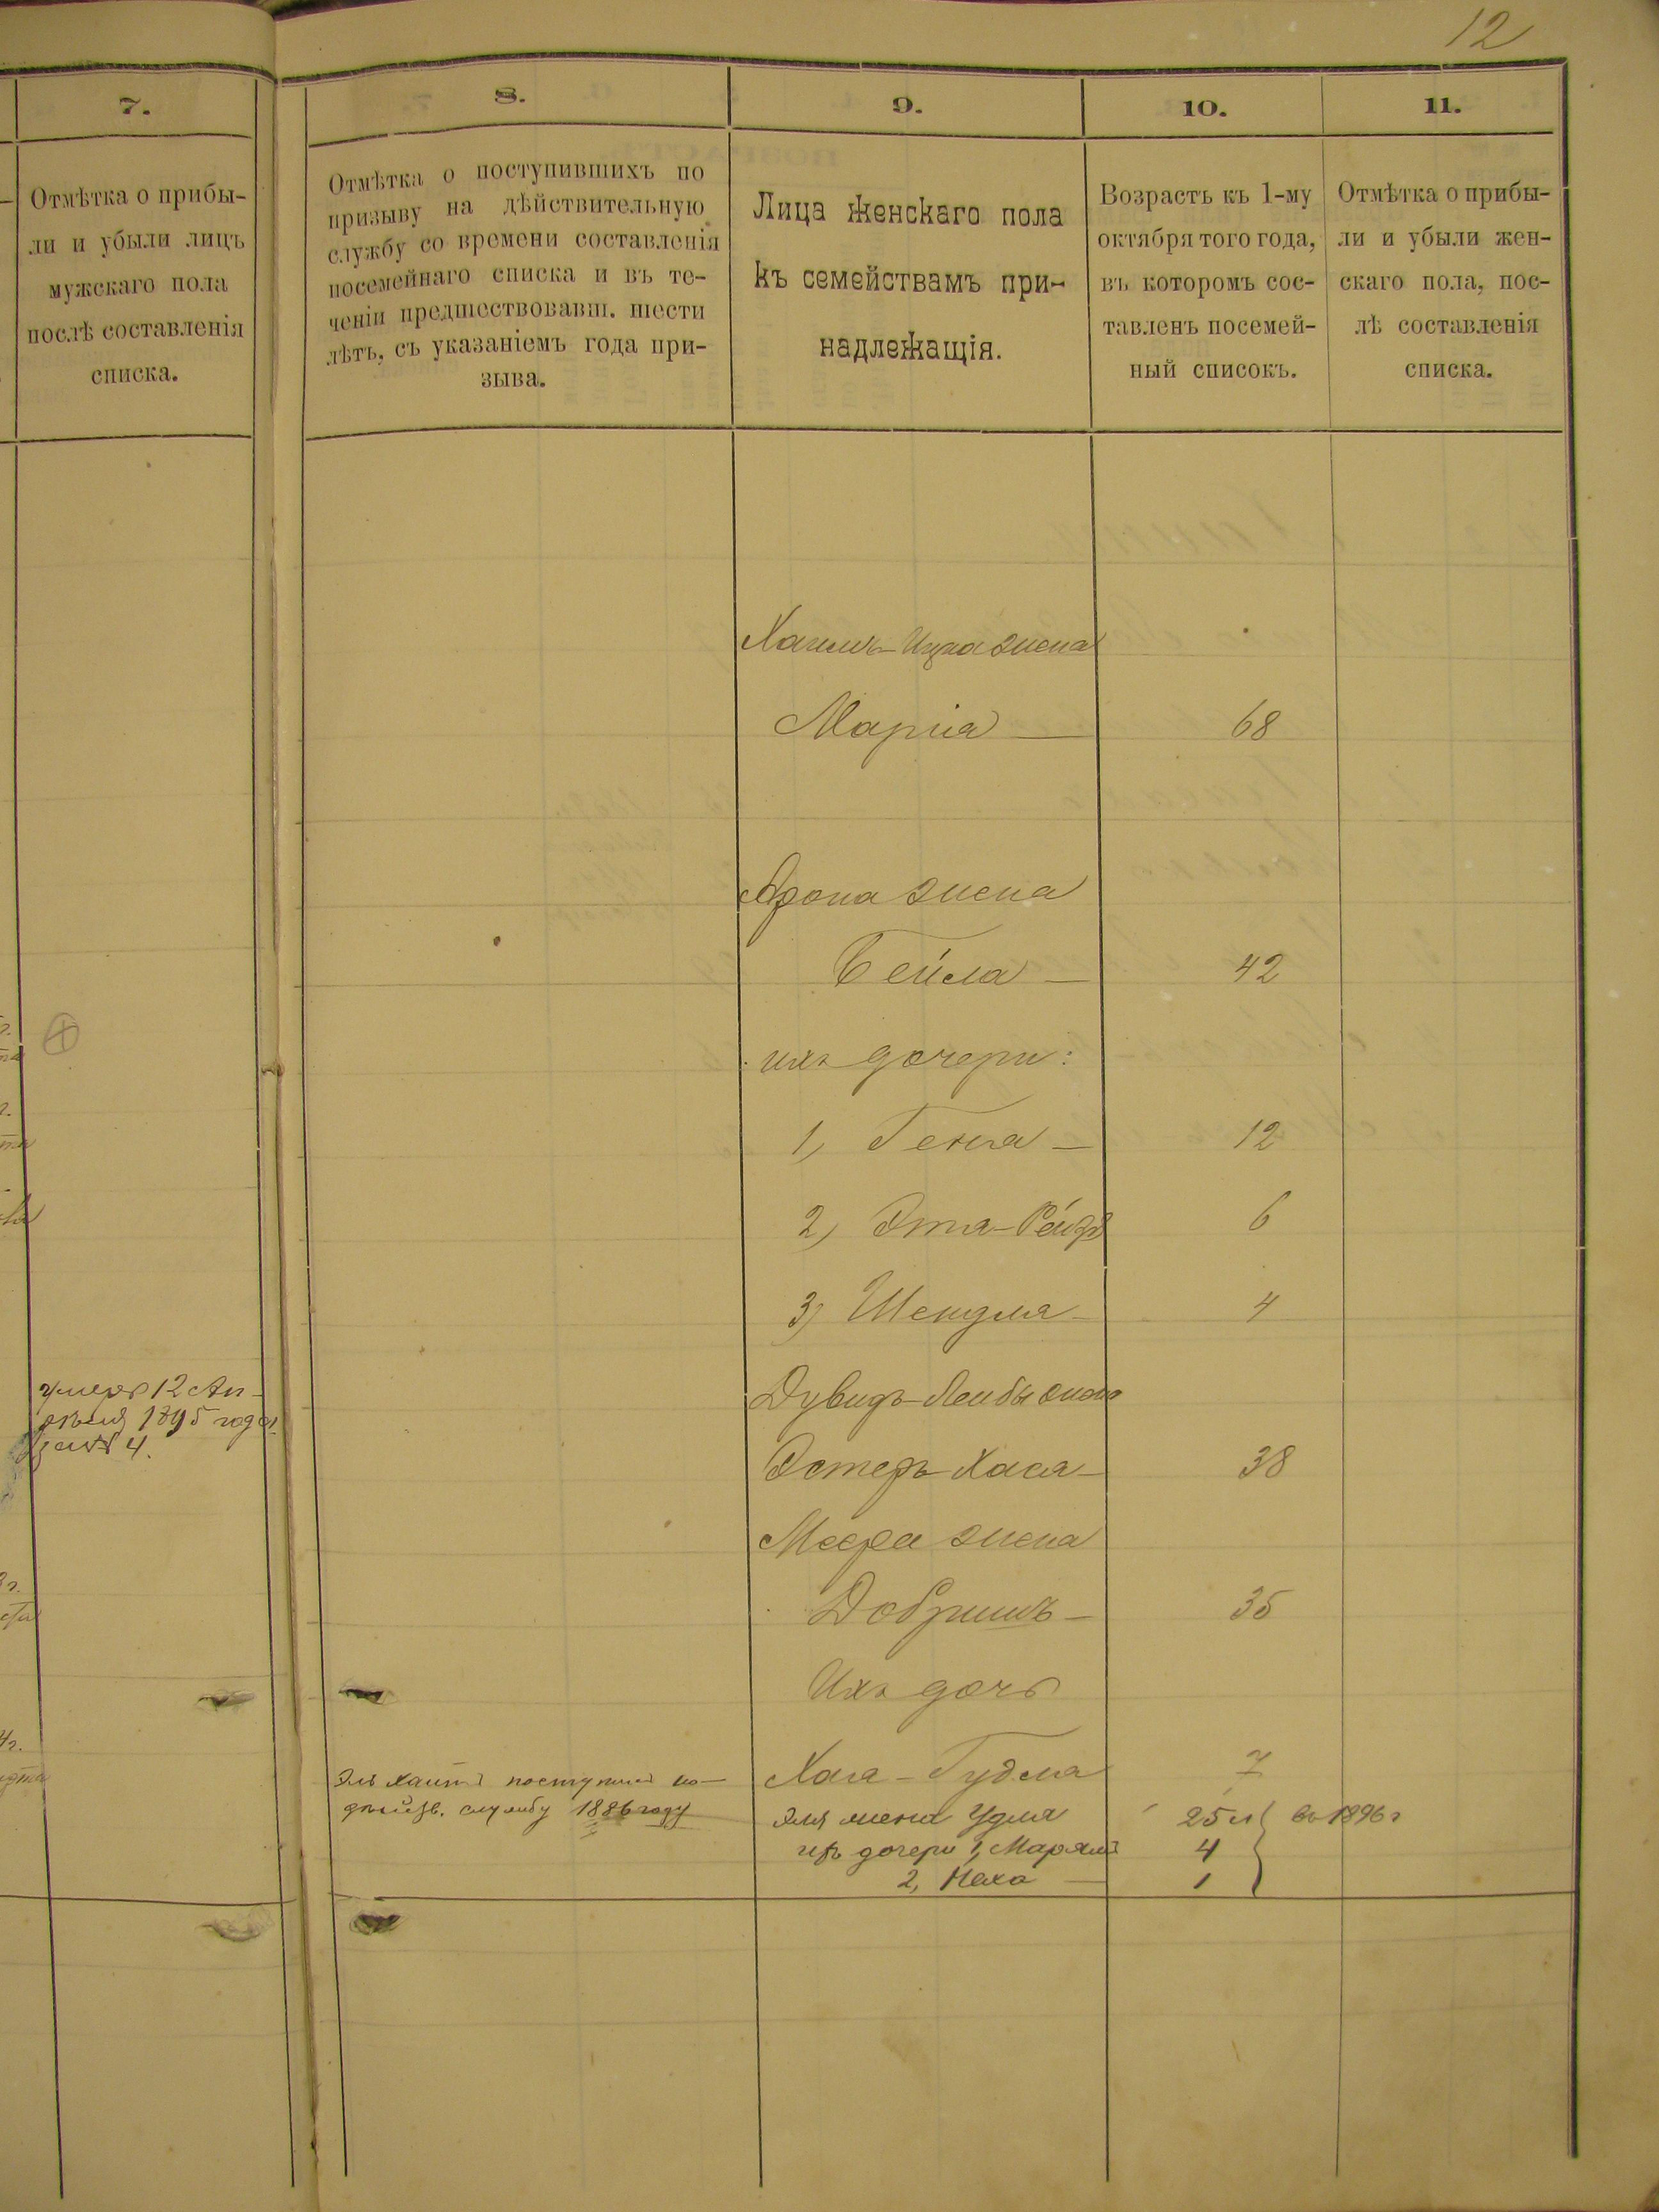 12
7.
Отмѣтка о прибы-
ли и убыли лицъ
мужскаго пола
послѣ составленія
списка.
умеръ 12 Ап-
рѣля 1895 года
8.
Отмѣтка о поступившихъ по
призыву на дѣйствительную
службу со времени составленія
посемейнаго списка и въ те-
ченіи предшествовавш. шести
лѣтъ, съ указаніемъ года при-
зыва.
9.
Лица женскаго пола
къ семействамъ при-
надлежащія.
10.
Возрастъ къ 1-му
октября того года,
въ которомъ сос-
тавленъ посемей-
ный списокъ.
11.
Отмѣтка о прибы-
ли и убыли жен-
скаго пола, пос-
лѣ составленія
списка.
Хаимъ-Ицка жена
Марiа — 68
Арона жена
Бейла — 42
ихъ дочери:
1, Геня — 12
2, Эта-Рейзя 6
3, Шендля — 4
Дувидъ-Лейбы жена
Эстеръ-Хася — 38
Меера жена
Добришъ — 35
Ихъ дочь
Хая-Гудля 7
поступилъ на
службу 1886 году
Эля жена Удля 25 л въ 1896 г
ихъ дочери 1, Марьямъ 4
2, Неха — 1